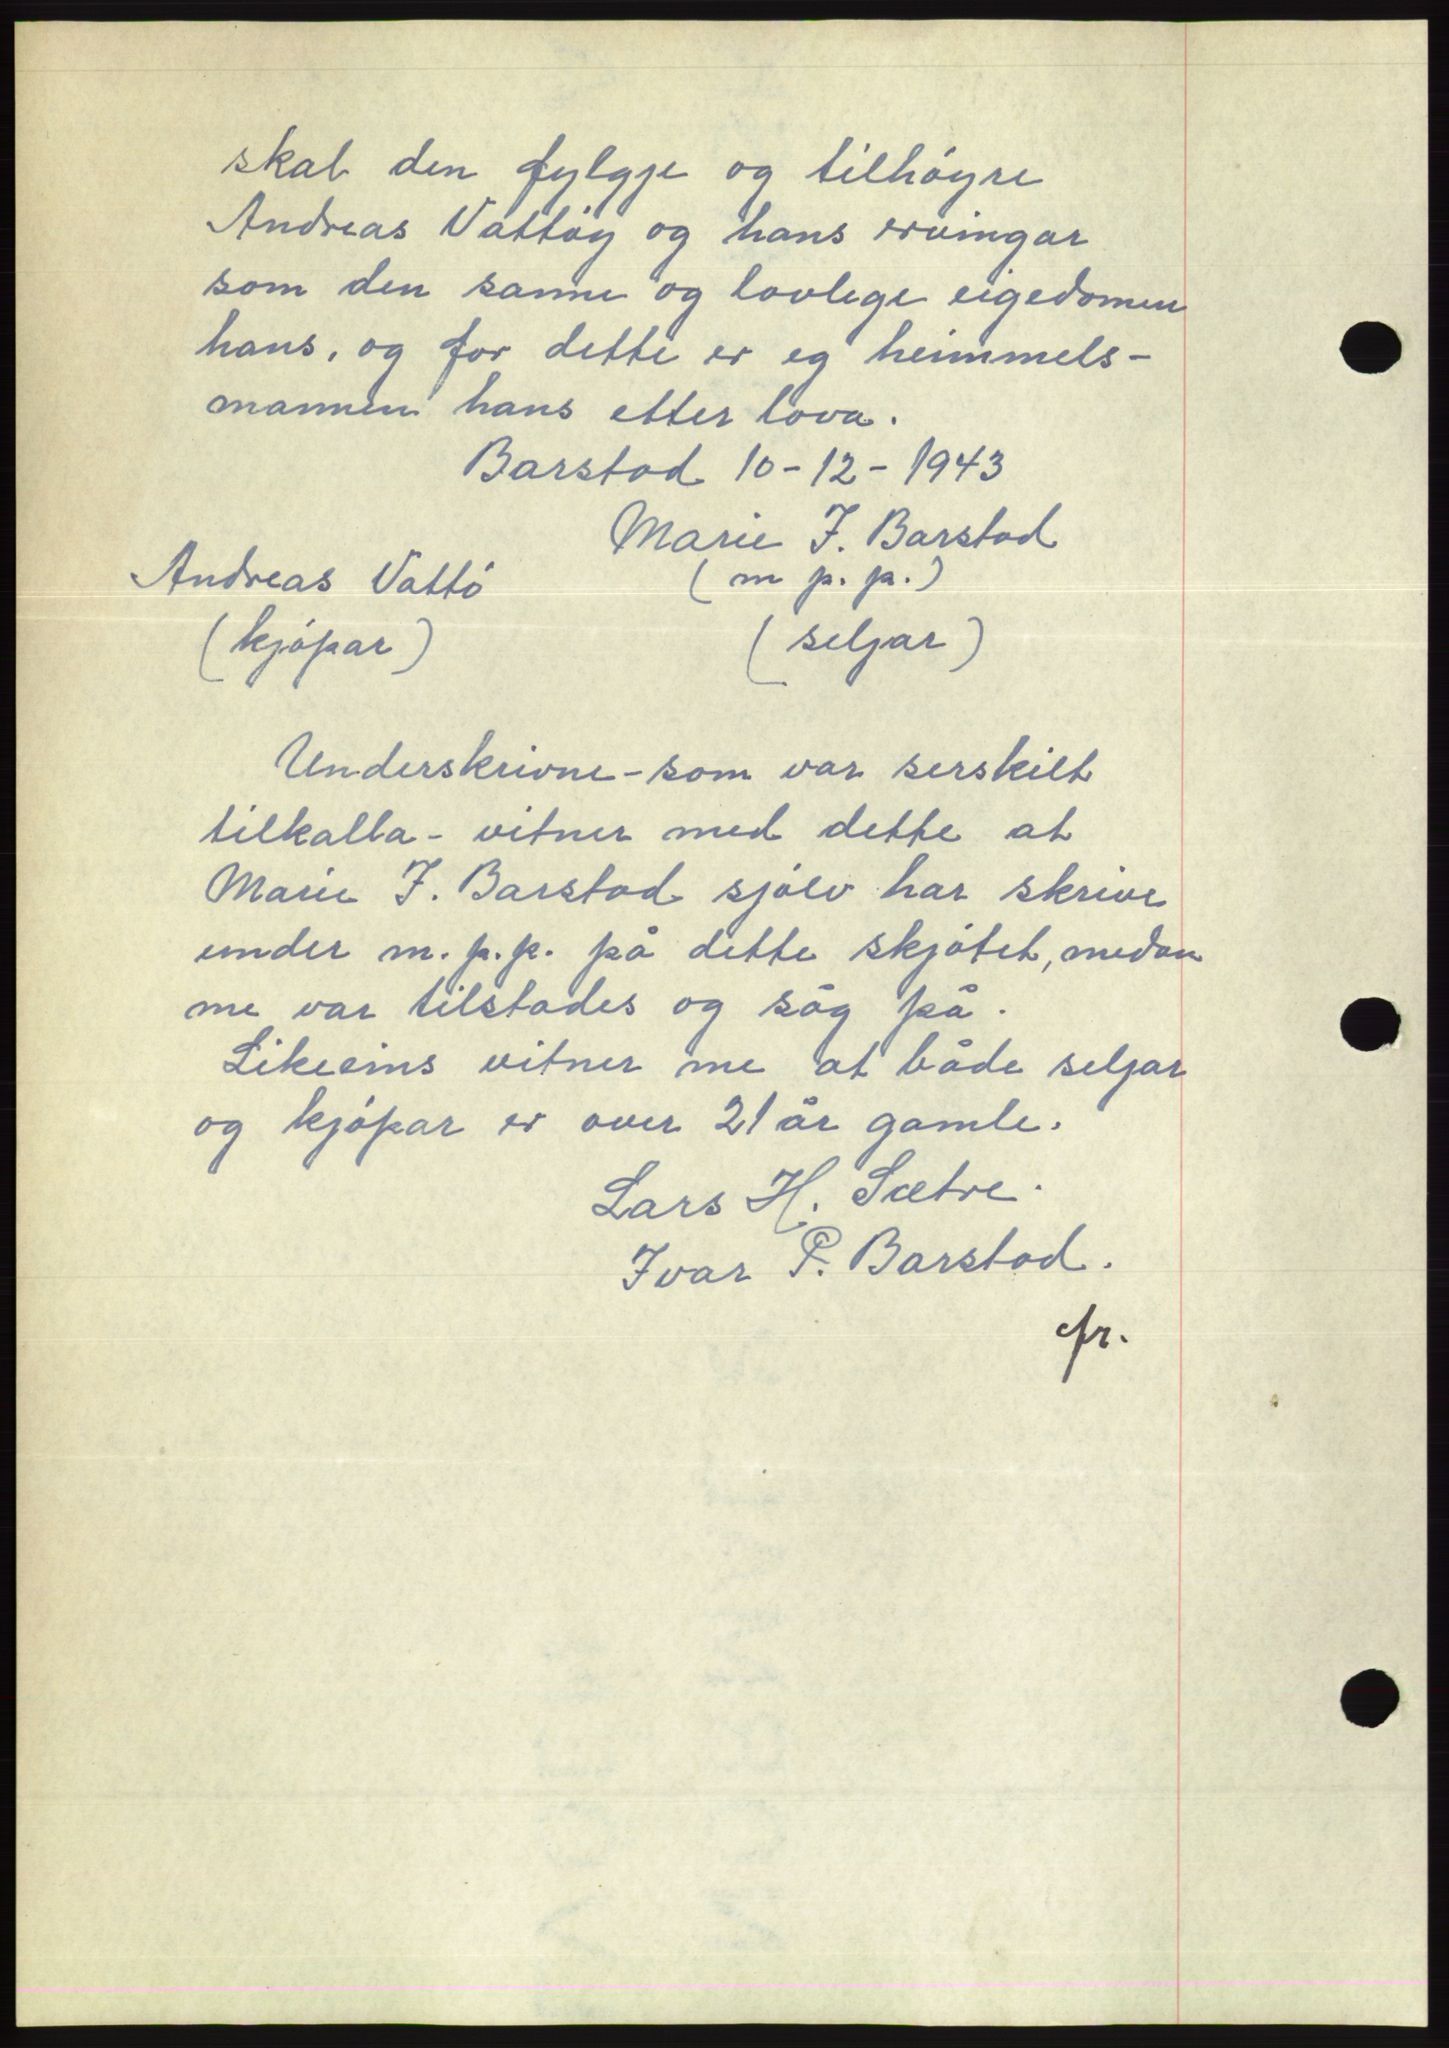 skal den fylgje og tilhóyre
Andreas Vattóy og hans ervingar
som den sanne og lovlege eigedomen
hans, og for dette er eg heimmels-
mannen hans etter lova.
Barstad 10-12-1943
Marie J. Barstad
Andreas Vattó
(m p. p.)
(kjópar)
(seljar)
Underskrivne-som var serskilt
tilkalla- vitner med dette at
Marie J. Barstad sjólv har skrive
under m. p. p. på dette skjótet, medan
me var tilstades og såg på.
Likeeins vitner me at både seljar
og kjópar er over 21 år gamle.
Lars H. Sætre.
Ivar P. Barstad.